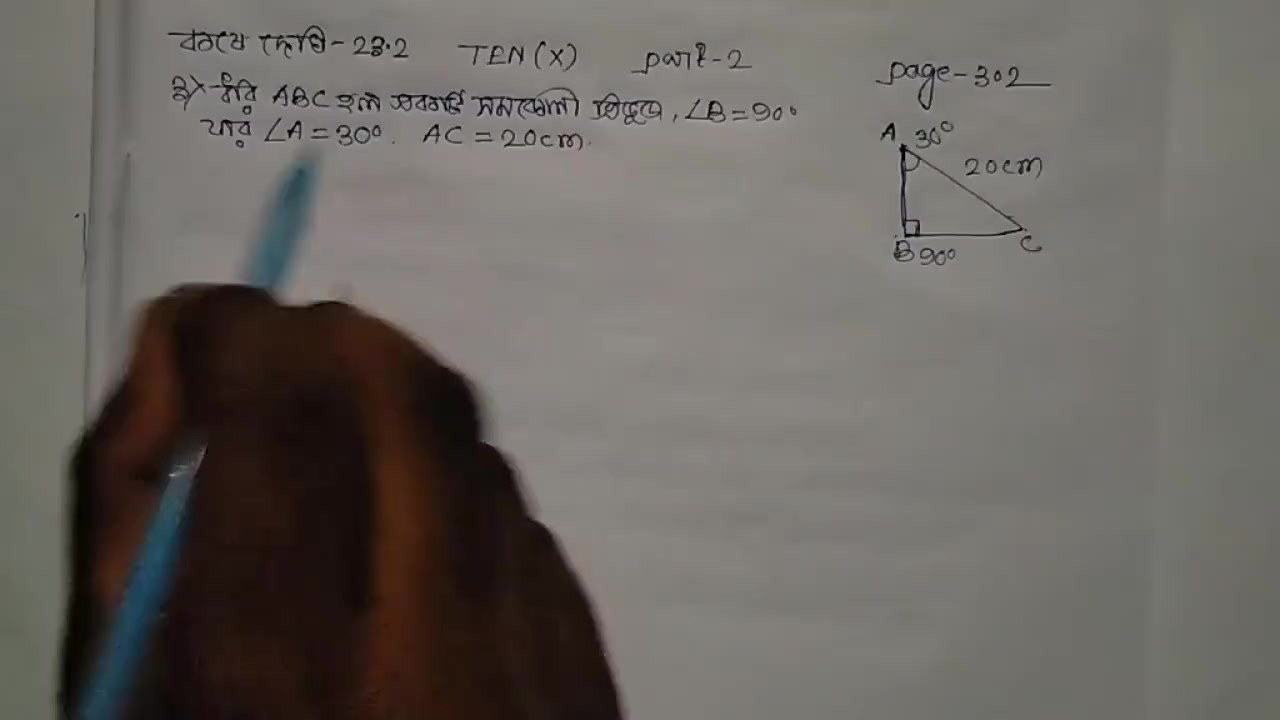 কষে দেখি - 23.2 TEN (X) part-2
page-302
২> ধরি ABC হল একটি সমকোণী ত্রিভুজ, ∠B = 90°
যার ∠A = 30°. AC = 20cm.
A 30°
20cm
B 90° C